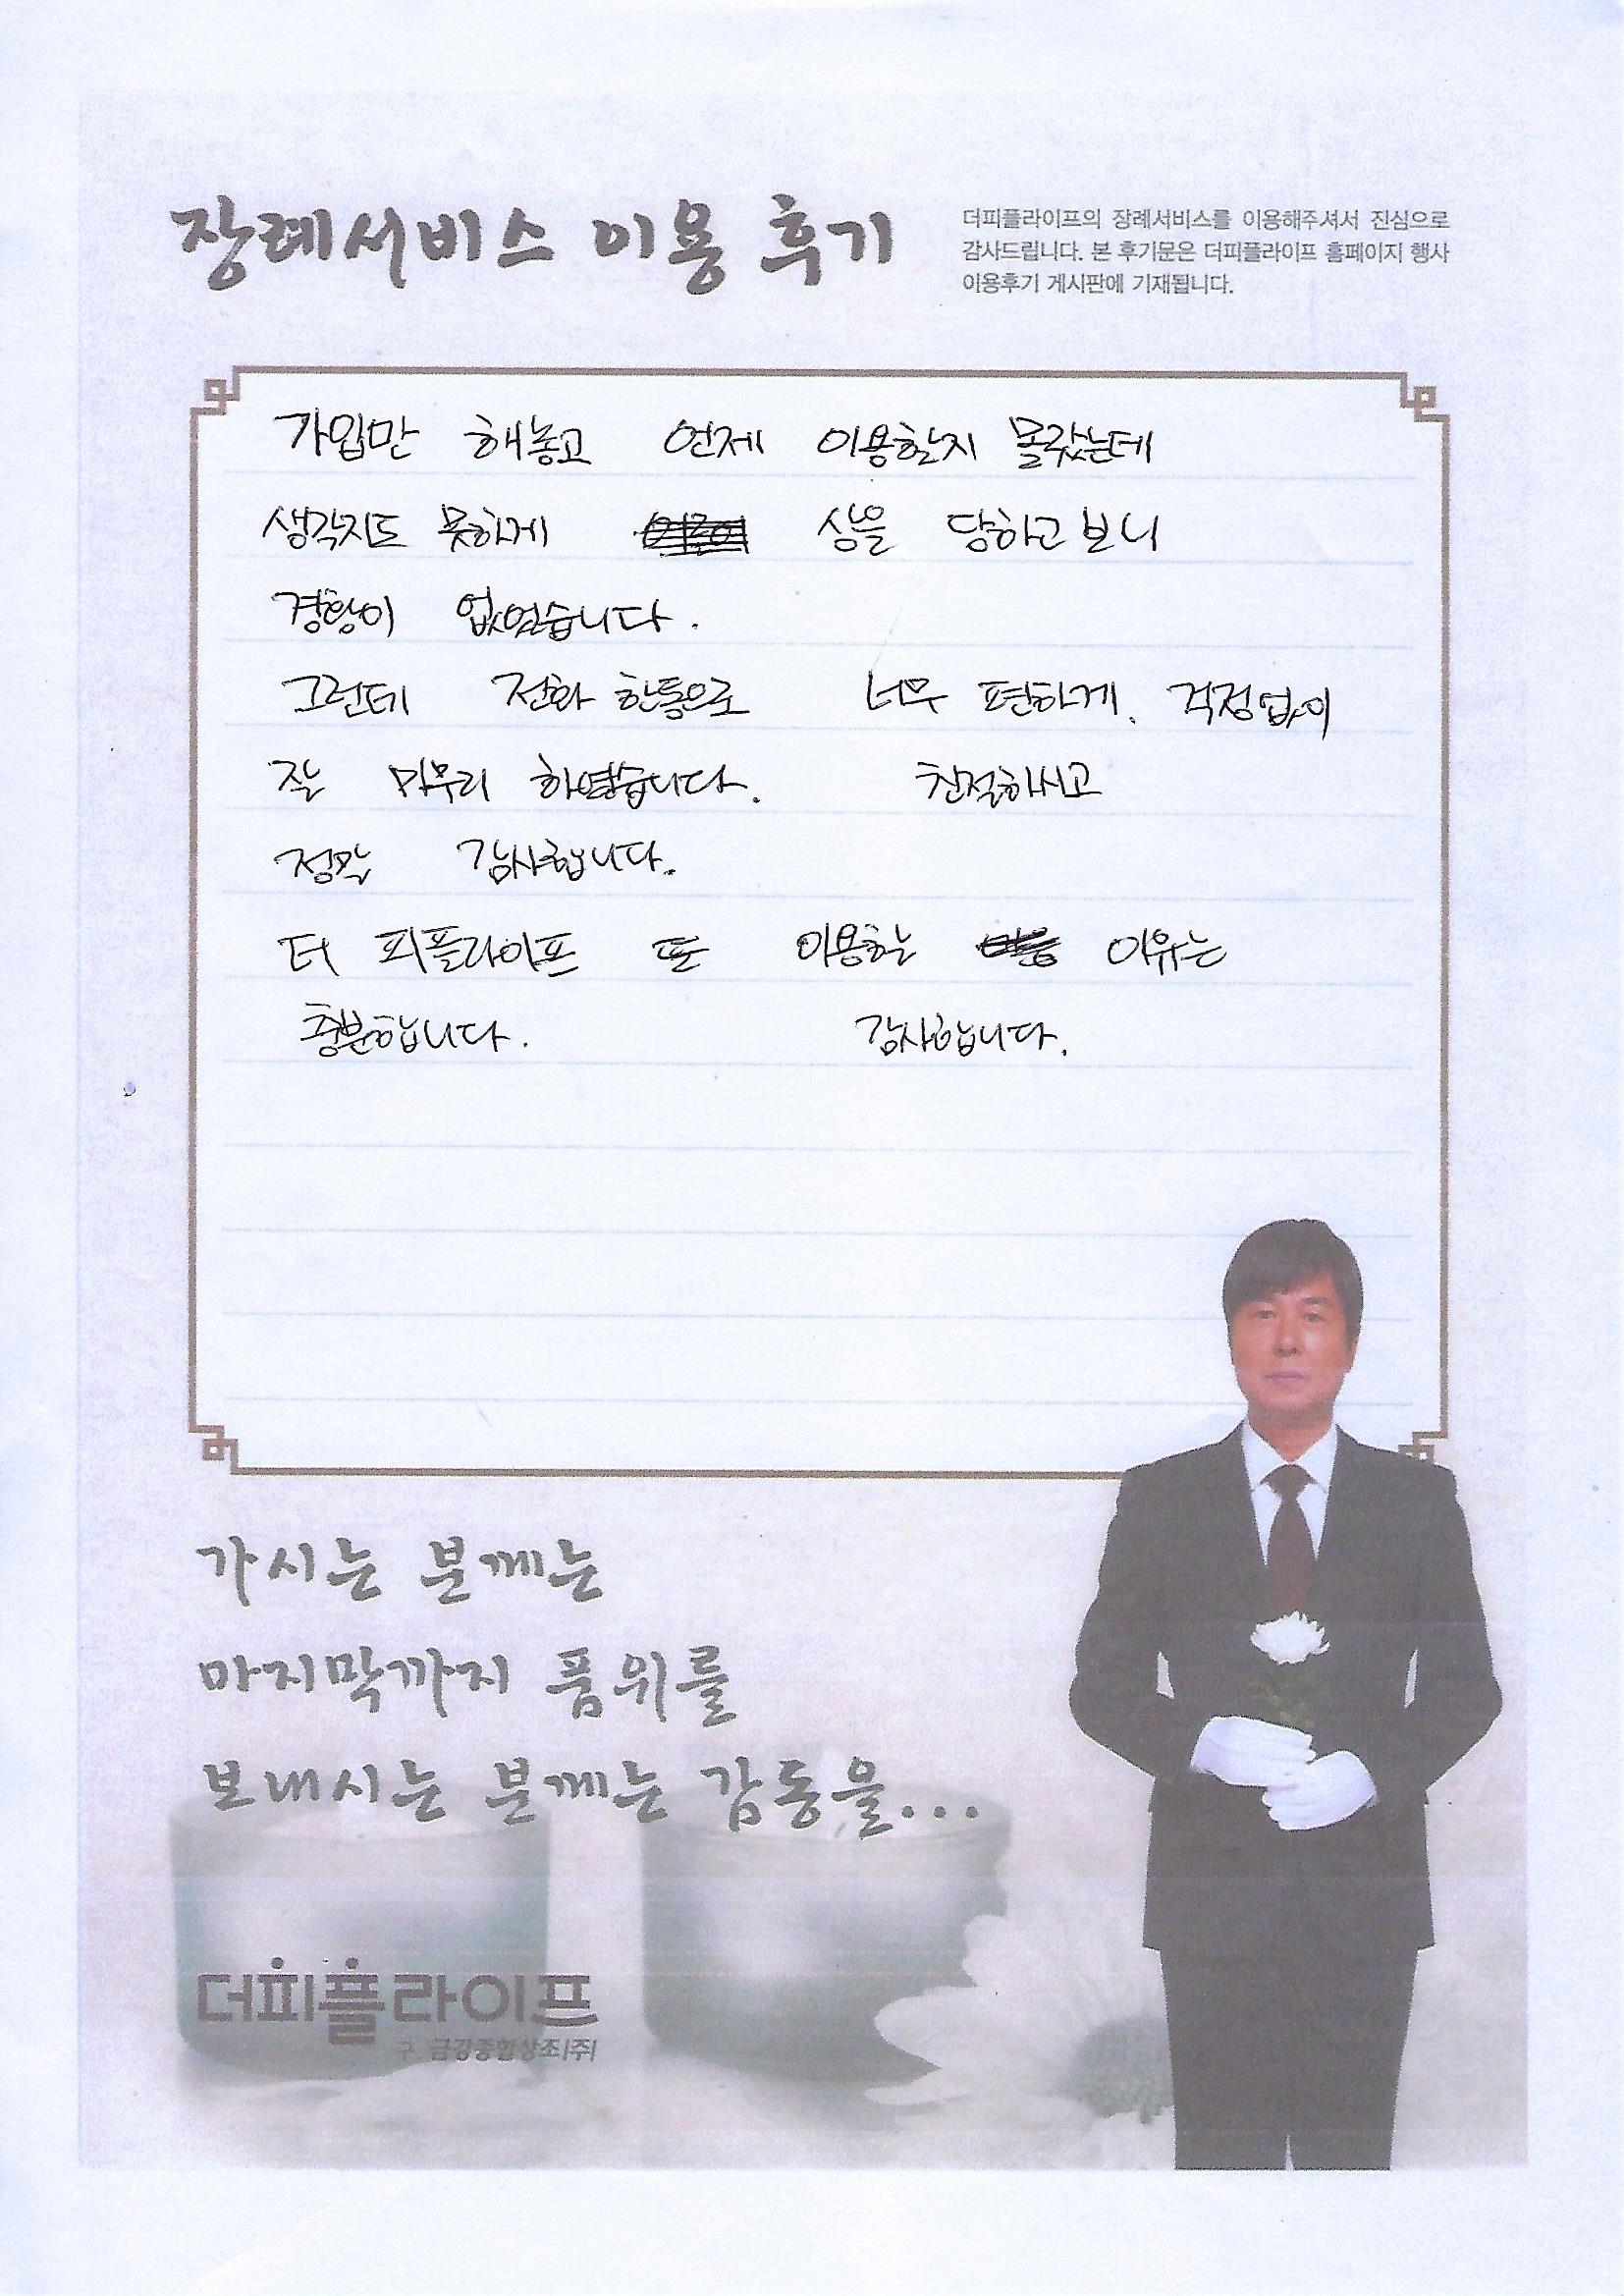 장례서비스 이용 후기
더피플라이프의 장례서비스를 이용해주셔서 진심으로
감사드립니다. 본 후기문은 더피플라이프 홈페이지 행사
이용후기 게시판에 기재됩니다.
가입만 해놓고 언제 이용할지 몰랐는데
생각지도 못하게 상을 당하고 보니
경황이 없었습니다.
그런데 전화 한통으로 너무 편하게. 걱정없이
잘 마무리 하였습니다. 친절하시고
정말 감사합니다.
더 피플라이프 또 이용할 이유는
충분합니다. 감사합니다.
가시는 분께는
마지막까지 품위를
보내시는 분께는 감동을...
더피플라이프
구. 금강종합상조(주)